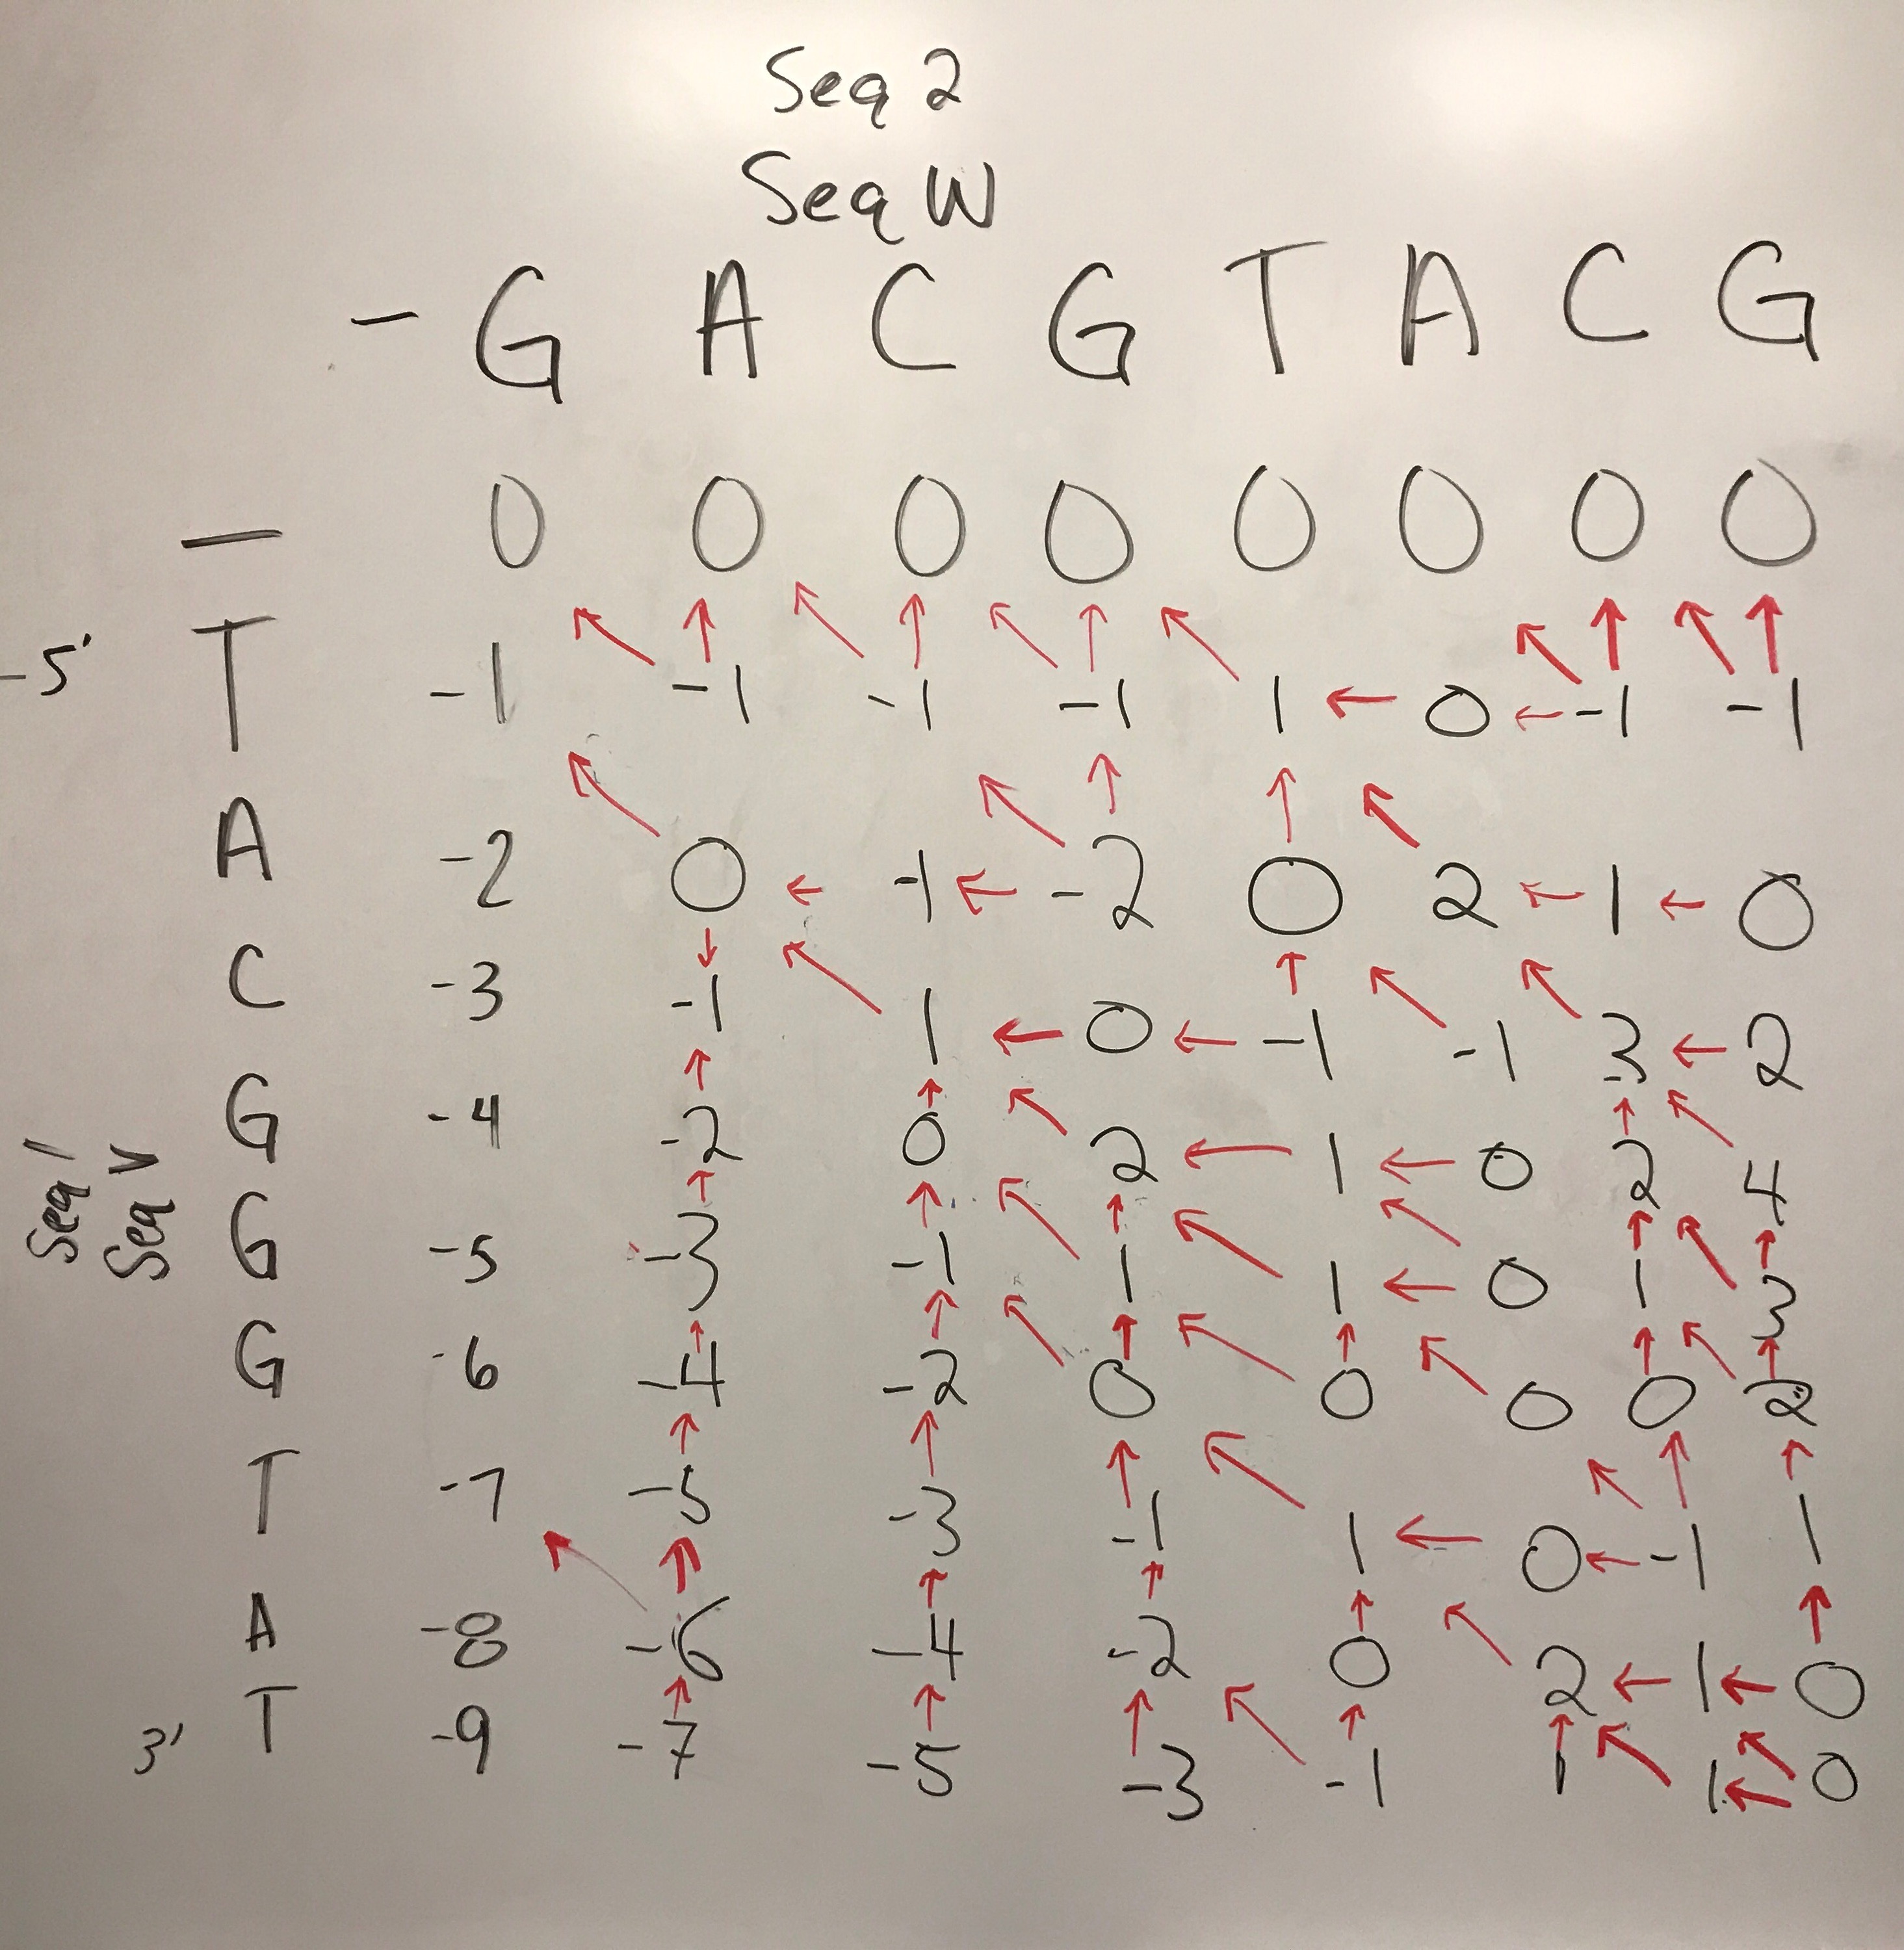 Seq 2
Seq W
- G A C G T A C G
— 0 0 0 0 0 0 0 0
-5' T -1 -1 -1 -1 1 0 -1 -1
A -2 0 -1 -2 0 2 1 0
C -3 -1 1 0 -1 -1 3 2
G -4 -2 0 2 1 0 2 4
Seq 1
Seq V
G -5 -3 -1 1 1 0 1 3
G -6 -4 -2 0 0 0 0 2
T -7 -5 -3 -1 1 0 -1 1
A -8 -6 -4 -2 0 2 1 0
3' T -9 -7 -5 -3 -1 1 1 0